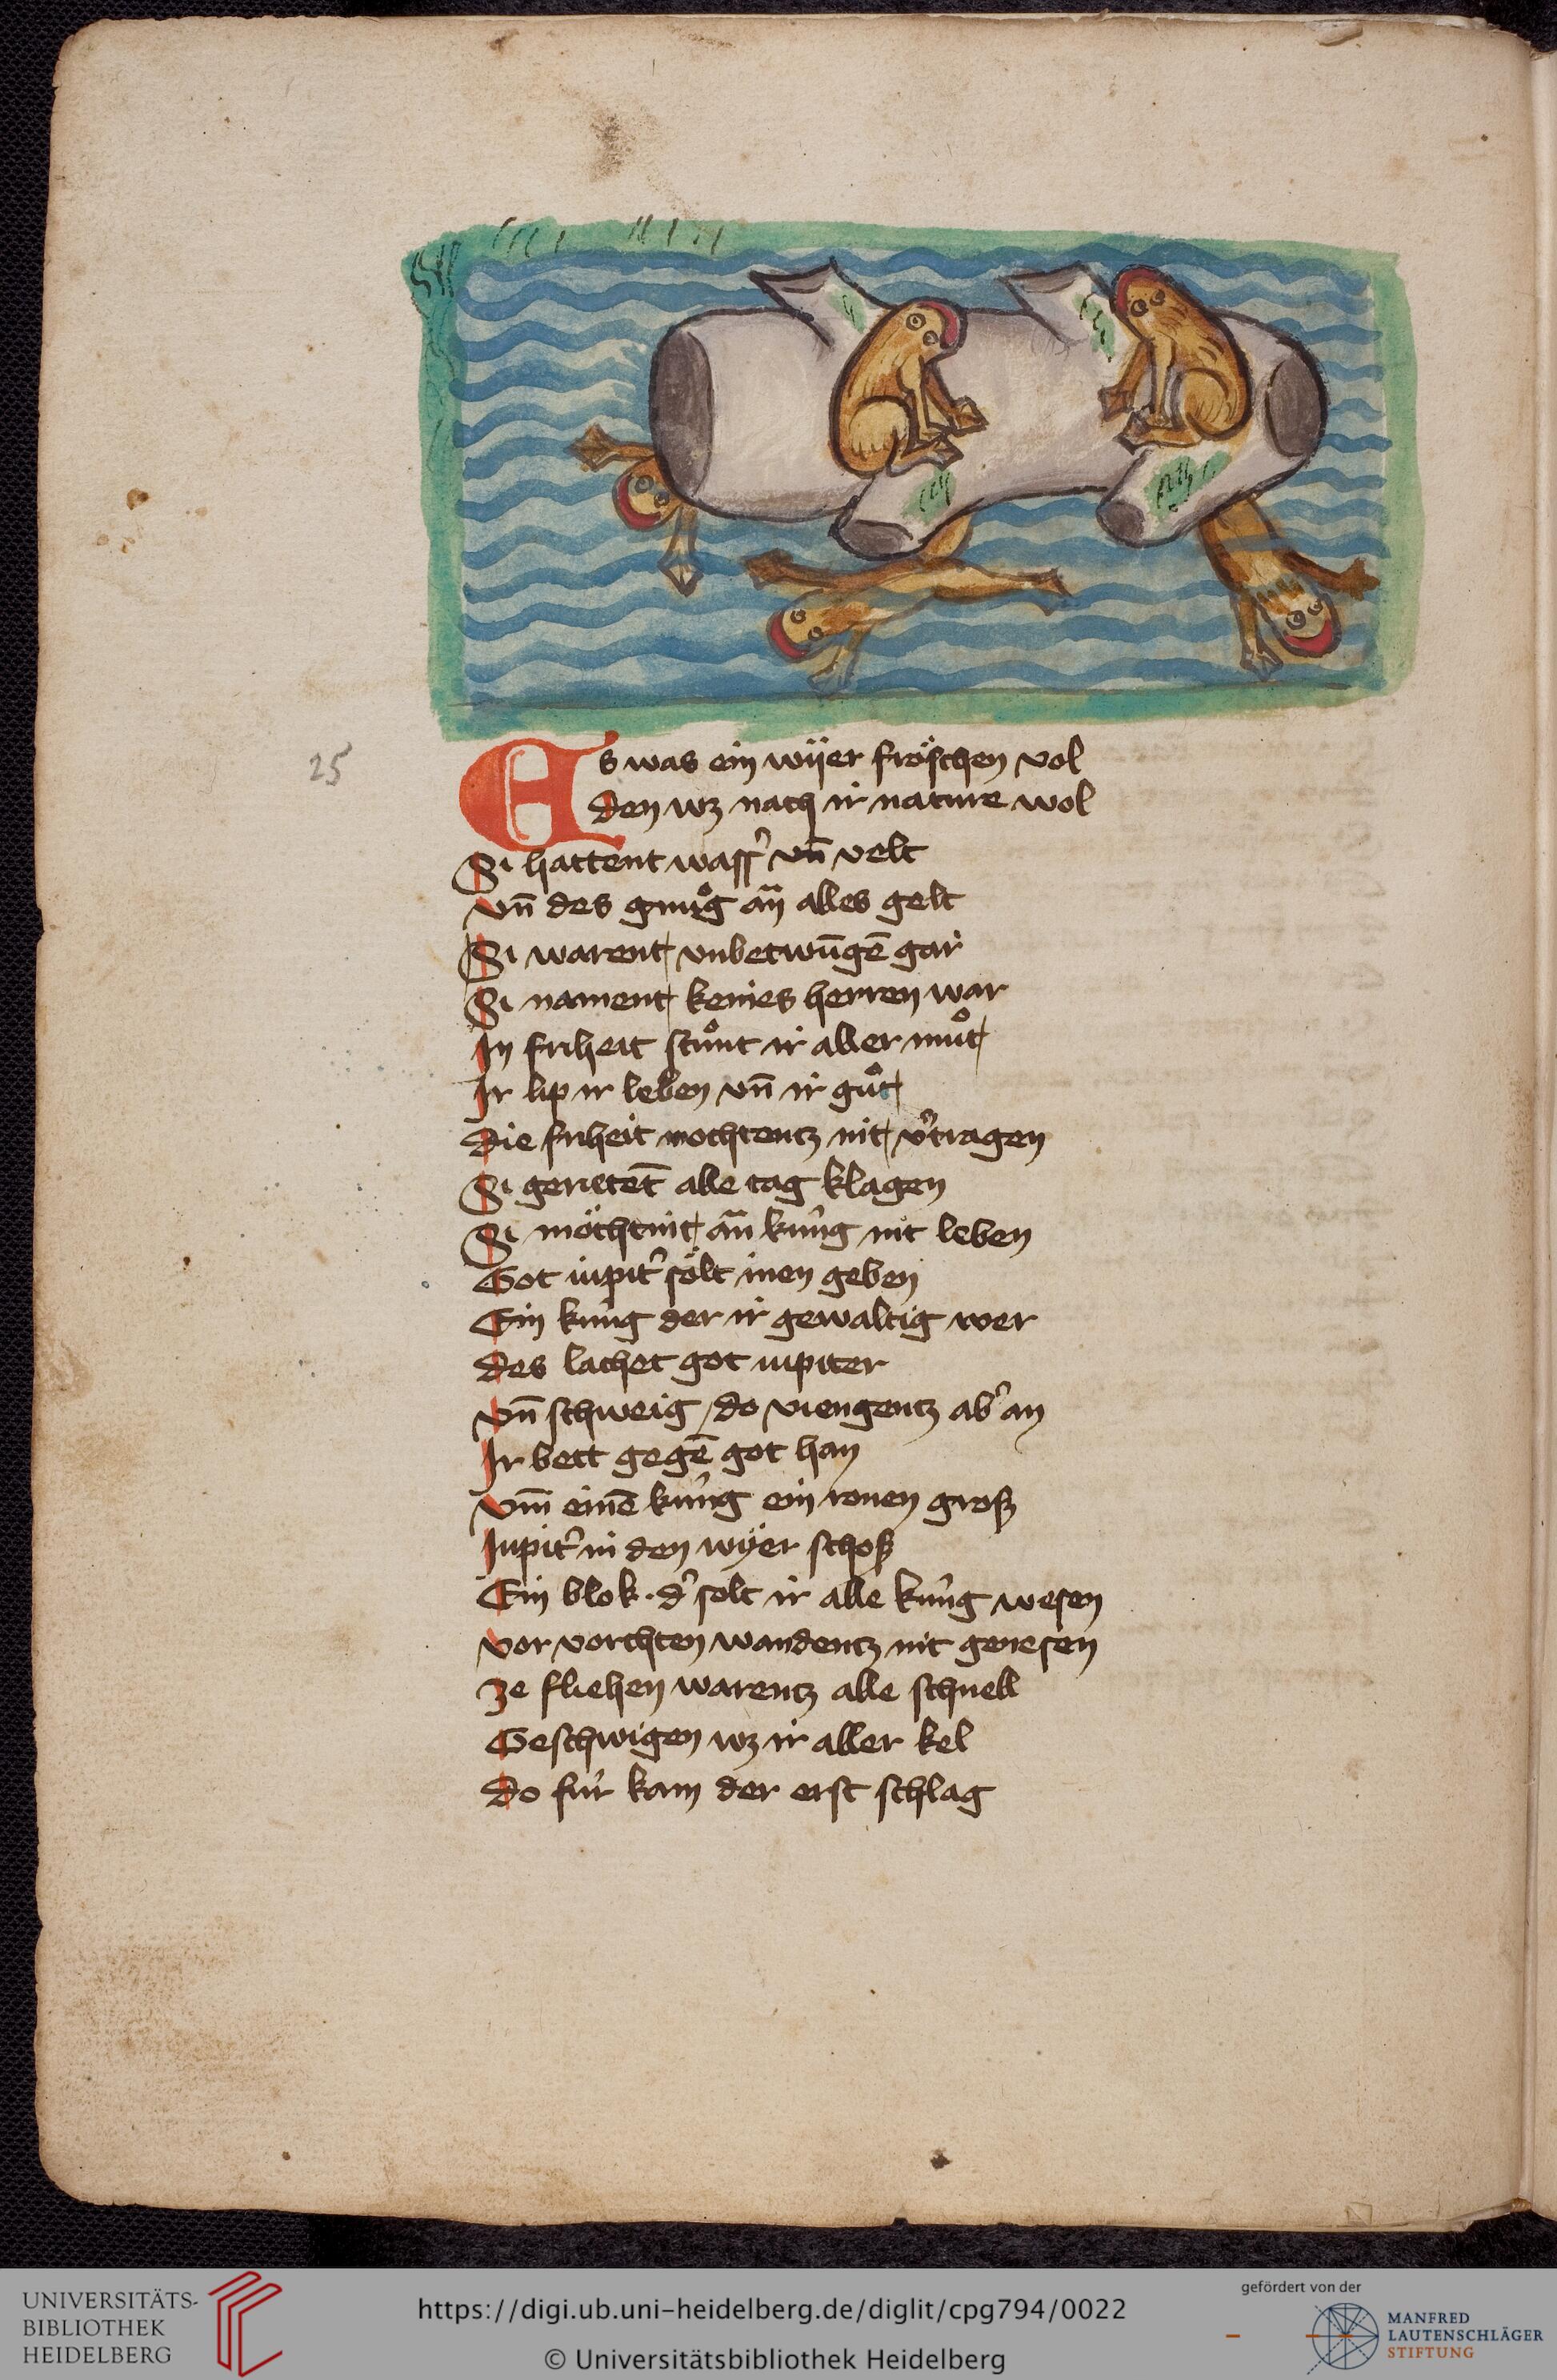 25
Es was ein wÿer fröschen vol
den wz nach ir nature wol
Si hattent wass̛ vn̄ velt
vn̄ des gnuͦg an̄ alles gelt
Si warent vnbetwūgē gar
Si nament keines herren war
In friheit stuͦnt ir aller muͦt
Ir lip ir leben vn̄ ir guͦt
die friheit mochtentz nit v̛tragen
Si gerietēt alle tag klagen
Si möchtint an̄ kúng nit leben
Got iupit̛ sölt inen geben
Ein kúng der ir gewaltig wer
des lachet got iupiter
vn̄ schweig / do viengentz ab̛ an
Ir bett gegē got han
vm̄ einē kúng ein ronen groß
Iupit̛ in den wÿer schoß
Ein blok · d̛ solt ir alle kúng wesen
vor vorchten wandentz nit genesen
ze fliehen warentz alle schnell
Geschwigen wz ir aller kel
do fúr kam der erst schlag
UNIVERSITÄTS-
BIBLIOTHEK
HEIDELBERG
https://digi.ub.uni-heidelberg.de/diglit/cpg794/0022
© Universitätsbibliothek Heidelberg
gefördert von der
MANFRED
LAUTENSCHLÄGER
STIFTUNG